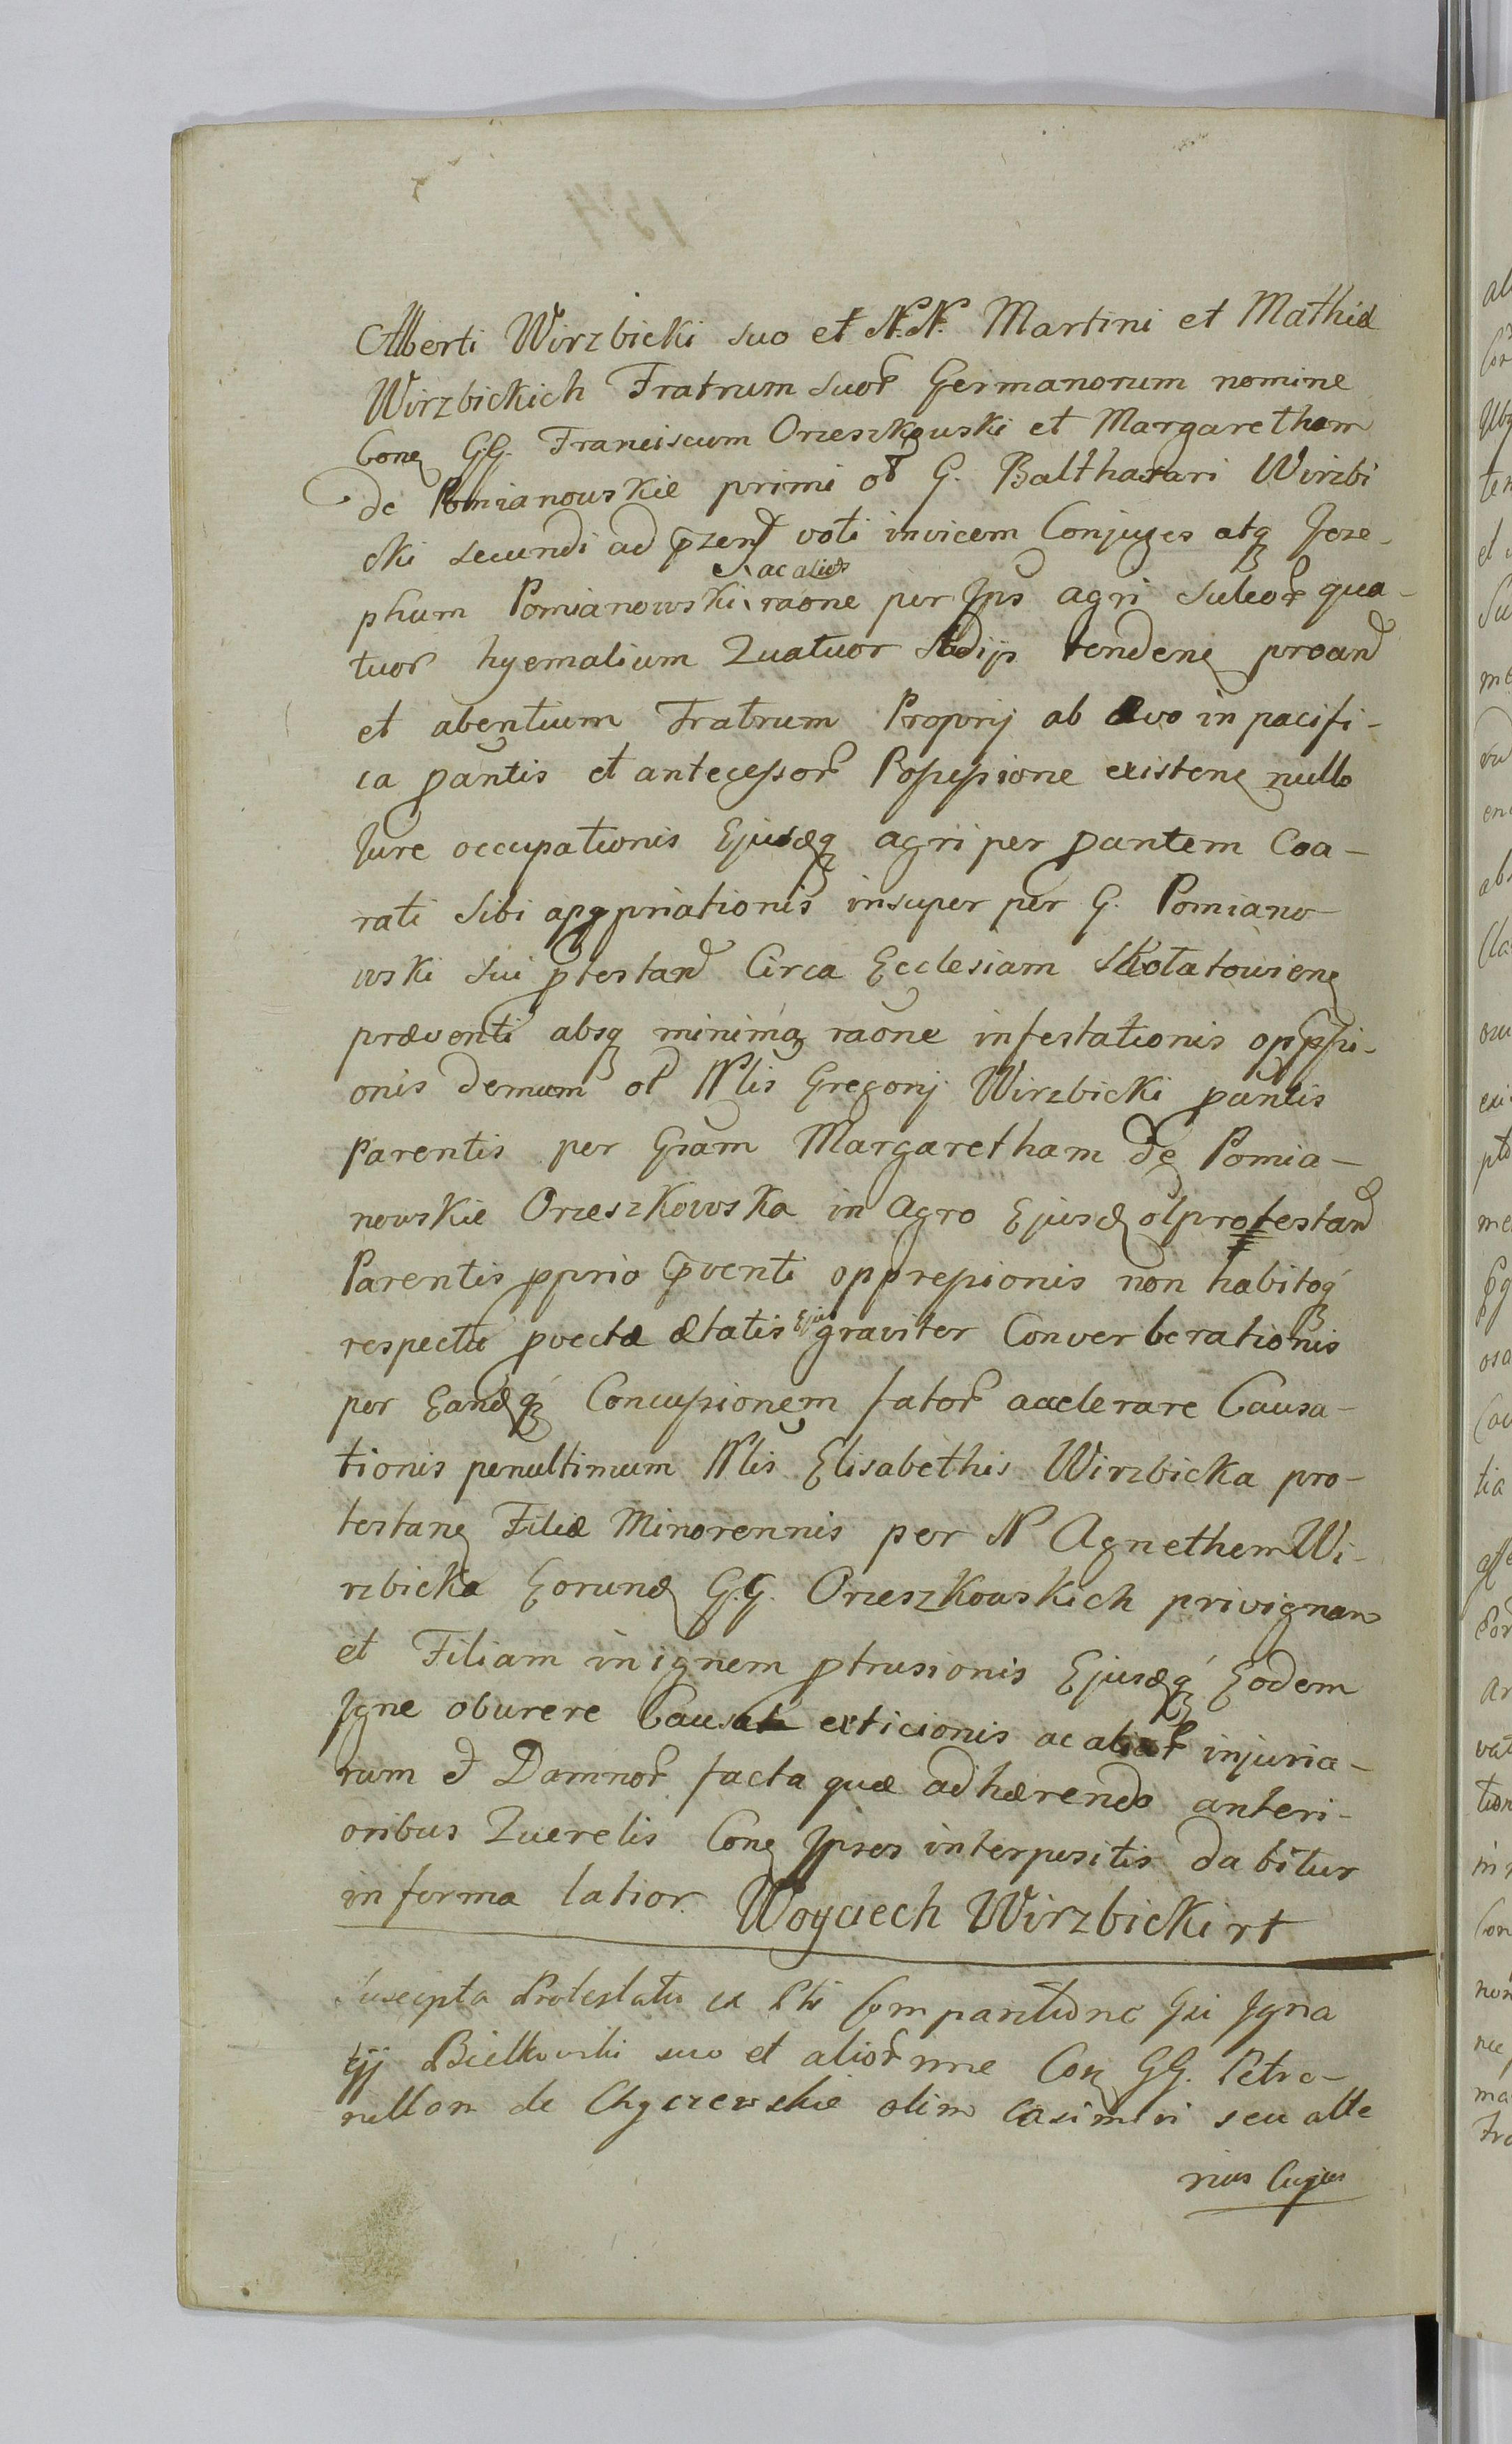 Alberti Wirzbicki suo et N.N. Martini et Mathiæ
Wirzbickich Fratrum suor̃ Germanorum nomine
Conq̨ G.G. Franciscum Orzeszkowski et Margaretham
de Pomianowskie primi ol̃ G. Balthasari Wirzbi
cki secundi ad p̃zend voti invicem Conjuges atq̨ Joze-
phum Pomianowski ac alios raõne per Ips agri sulcor̃ qua-
tuor hyemalium Quatuor Stadijs tendenq̨ proand
et absentium Fratrum Proprij ab ævo in pacifi-
ca pantis et antecessor̃ Possessione existenq̨ nullo
Jure occupationis Ejusdq̨ agri per pantem Coa-
rati sibi appropriationis insuper per G. Pomiano-
wski sui p̃testand Circa Ecclesiam Skołatowienq̨
præventi absq̨ minima raõne infestationis oppssi-
onis demum ol̃ Nlis Gregorij Wirzbicki pantis
Parentis per Gsam Margaretham de Pomia-
nowskie Orzeszkowska in Agro Ejusd ol protestand
Parentis pprio p̃venti oppressionis non habitoq̨
respectu pvectæ ætatis Ejus graviter Converberationis
per Eandq̨ Concussionem fator̃ accelerare Causa-
tionis penultimum Nlis Elisabethis Wirzbicka pro-
testanq̨ Filiæ Minorennis per N Agnethem Wi-
rzbicka Eorund G.G. Orzeszkowskich privignam
et Filiam in ignem ptrusionis Ejusdq̨ Eodem
Igne oburere Causat exticionis ac alior̃ injuria-
rum et Damnor̃ facta quæ adhærendo anteri-
oribus Querelis Conq̨ Ipsos interpositis dabitur
in forma latior. Woyciech Wirzbicki rt
Suscipta Protestatio ex Pti Comparitione Gsi Igna
tij Bielkowski suo et alior̃ nne Conq̨ GG. Petro-
nellam de Chyczewskie olim Casimiri seu alte
rius Cujus